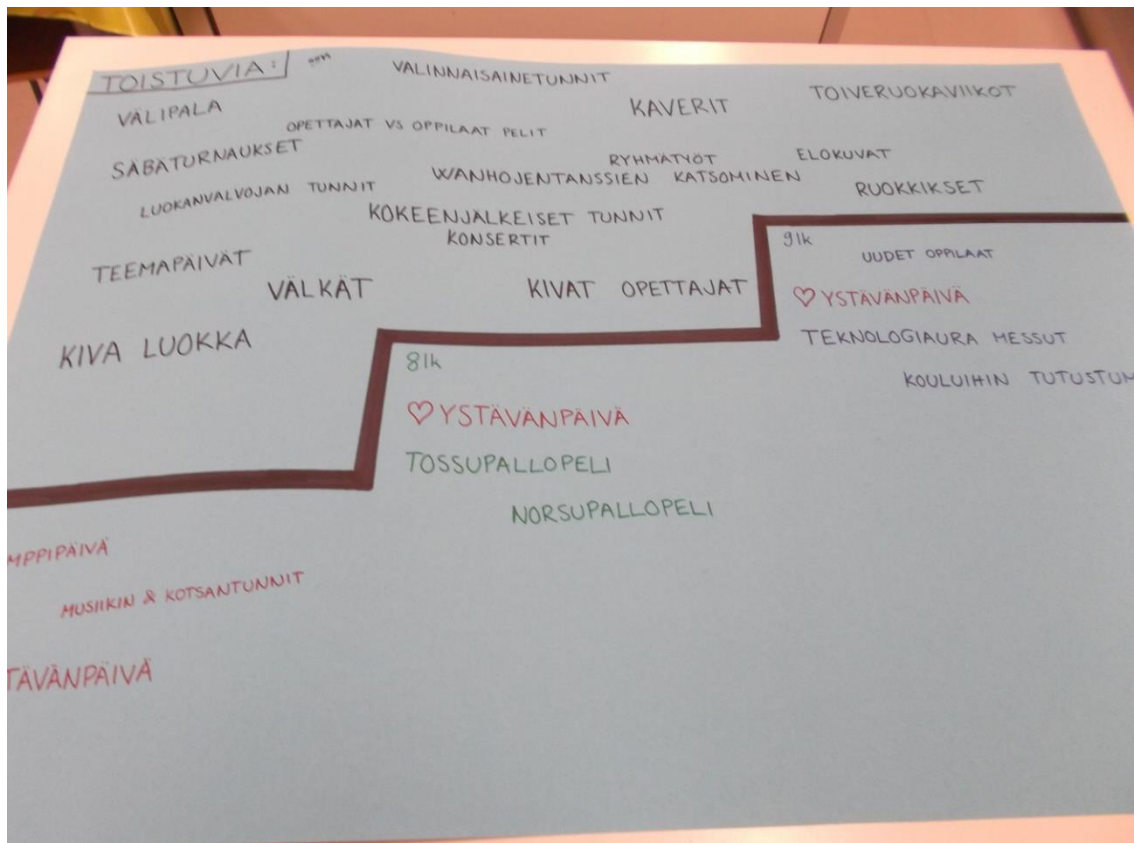 TOISTUVIA:
VALINNAISAINETUNNIT
TOIVERUOKAVIIKOT
VÄLIPALA
KAVERIT
OPETTAJAT VS OPPILAAT PELIT
SÄBÄTURNAUKSET
RYHMÄTYÖT
ELOKUVAT
WANHOJENTANSSIEN KATSOMINEN
LUOKANVALVOJAN TUNNIT
RUOKKIKSET
KOKEENJÄLKEISET TUNNIT
KONSERTIT
TEEMAPÄIVÄT
VÄLKÄT
KIVAT OPETTAJAT
KIVA LUOKKA
9lk
UUDET OPPILAAT
♡ YSTÄVÄNPÄIVÄ
TEKNOLOGIAURA MESSUT
KOULUIHIN TUTUSTUM
8lk
♡ YSTÄVÄNPÄIVÄ
TOSSUPALLOPELI
NORSUPALLOPELI
MPPIPÄIVÄ
MUSIIKIN & KOTSANTUNNIT
TÄVÄNPÄIVÄ